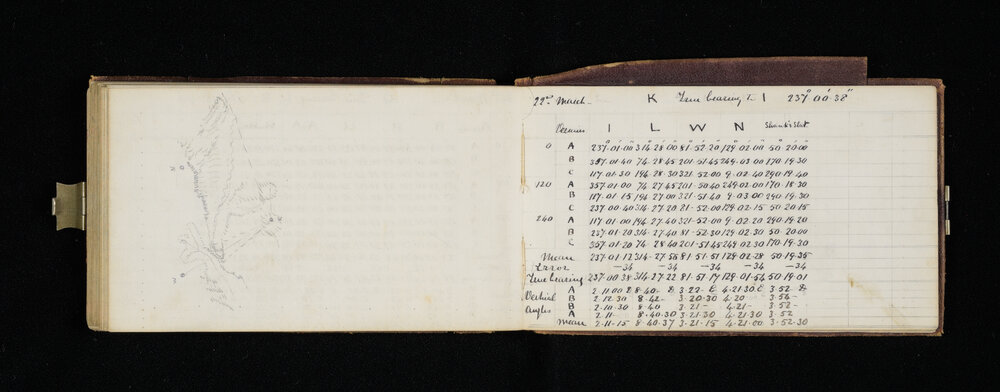 22nd March K True bearing to I 237° 00' 38"
I L W N
0 A 237.01.00 314.28.00 81.52.20 129.02.00 50.20.00
B 357.01.40 74.28.45 201.51.45 249.03.00 170.19.30
C 117.01.30 194.28.30 321.52.00 9.02.40 290.19.40
120 A 357.01.00 74.27.45 201.50.40 249.02.00 170.18.30
B 117.01.15 194.27.00 321.51.40 9.03.00 290.19.30
C 237.00.40 314.27.20 81.52.00 129.02.15 50.20.15
240 A 117.01.00 194.27.40 321.52.00 9.02.20 290.19.20
B 237.01.20 314.27.40 81.52.30 129.02.30 50.20.00
C 357.01.20 74.28.40 201.51.45 249.02.30 170.19.30
Mean 237.01.12 314.27.56 81.51.51 129.02.28 50.19.35
Error -34 -34 -34 -34 -34
True bearing 237.00.38 314.27.22 81.51.17 129.01.54 50.19.01
A 2.11.00 E 8.40- E 3.22- E 4.21.30. E 3.52- E
Vertical B 2.12.30 8.42- 3.20.30 4.20 3.54-
Angles B 2.10.30 8.40 3.21- 4.21- 3.52-
A 2.11- 8.40.30 3.21.30 4.21.30 3.52
Mean 2.11.15 8.40.37 3.21.15 4.21.00 3.52.30